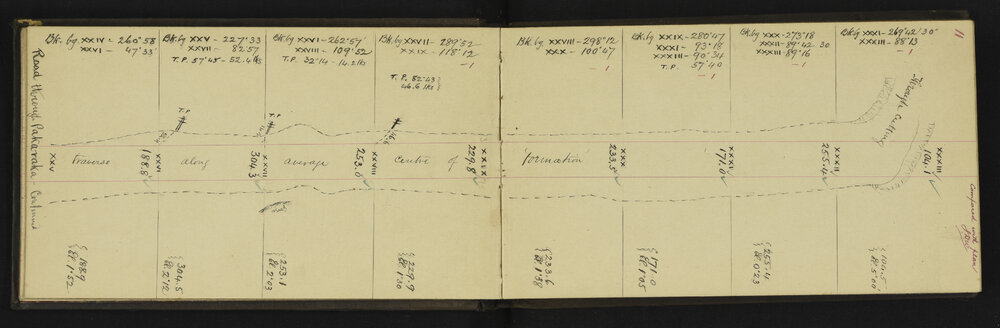 Road through Pakaraka - Continued
Bk. bg XXIV - 260°58
XXVI - 47°33'
Bk. bg XXV - 227°33
XXVII - 82°57
T.P. 57°45 - 52.4 lks
Bk. bg XXVI - 262°57'
XXVIII - 109°52
T.P. 32°14 - 14.2 lks
Bk. bg XXVII - 289°52
XXIX - 118°12
-1
T.P. 82°43
46.6 lks
Bk. bg XXVIII - 298°12
XXX - 100°47
-1
Bk. bg XXIX - 280°47
XXXI - 93°18
XXXII - 90°34
T.P. 57°40
-1
Bk. bg XXX - 273°18
XXXII - 89°42'30
XXXIII - 89°16
-1
Bk. bg XXXI - 269°42'30"
XXXIII - 88°13
-1
11
T.P.
T.P.
Through Cutting
XXV
Traverse
188.8
XXVI
along
304.3
XXVII
average
253.0
XXVIII
centre of
229.8
XXIX
'formation'
233.5
XXX
171.0
XXXI
255.4
XXXII
104.1
XXXIII
188.9
El. 1°52
304.5
El. 2°12
253.1
El. 2°03
229.9
El. 1°30
233.6
El. 1°58
171.0
El. 1°05
255.4
El. 0°23
El. 5°00'
Compared with